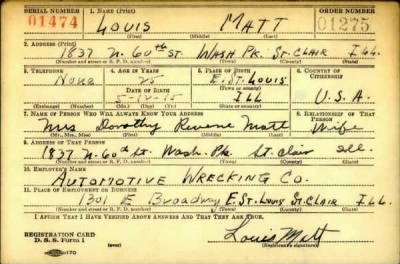 SERIAL NUMBER 1. NAME (Print) ORDER NUMBER
01474 LOUIS MATT 01275
(First) (Middle) (Last)
2. ADDRESS (Print)
1837 N. 60th ST. WASH PK. ST. CLAIR ILL.
(Number and street or R. F. D. number) (Town) (County) (State)
3. TELEPHONE 4. AGE IN YEARS 5. PLACE OF BIRTH 6. COUNTRY OF CITIZENSHIP
None 25 E. ST. LOUIS
DATE OF BIRTH (Town or county)
5-12-15 ILL U.S.A.
(Exchange) (Number) (Mo.) (Day) (Yr.) (State or country)
7. NAME OF PERSON WHO WILL ALWAYS KNOW YOUR ADDRESS 8. RELATIONSHIP OF THAT PERSON
Mrs Dorothy Matt Wife
(Mr., Mrs., Miss) (First) (Middle) (Last)
9. ADDRESS OF THAT PERSON
1837 N. 60th St. Wash. Pk. St. Clair Ill.
(Number and street or R. F. D. number) (Town) (County) (State)
10. EMPLOYER'S NAME
AUTOMOTIVE WRECKING CO.
11. PLACE OF EMPLOYMENT OR BUSINESS
1301 E Broadway E. ST. LOUIS ST. CLAIR ILL.
(Number and street or R. F. D. number) (Town) (County) (State)
I AFFIRM THAT I HAVE VERIFIED ABOVE ANSWERS AND THAT THEY ARE TRUE.
REGISTRATION CARD
D. S. S. Form 1 Louis Matt
(Registrant's signature)